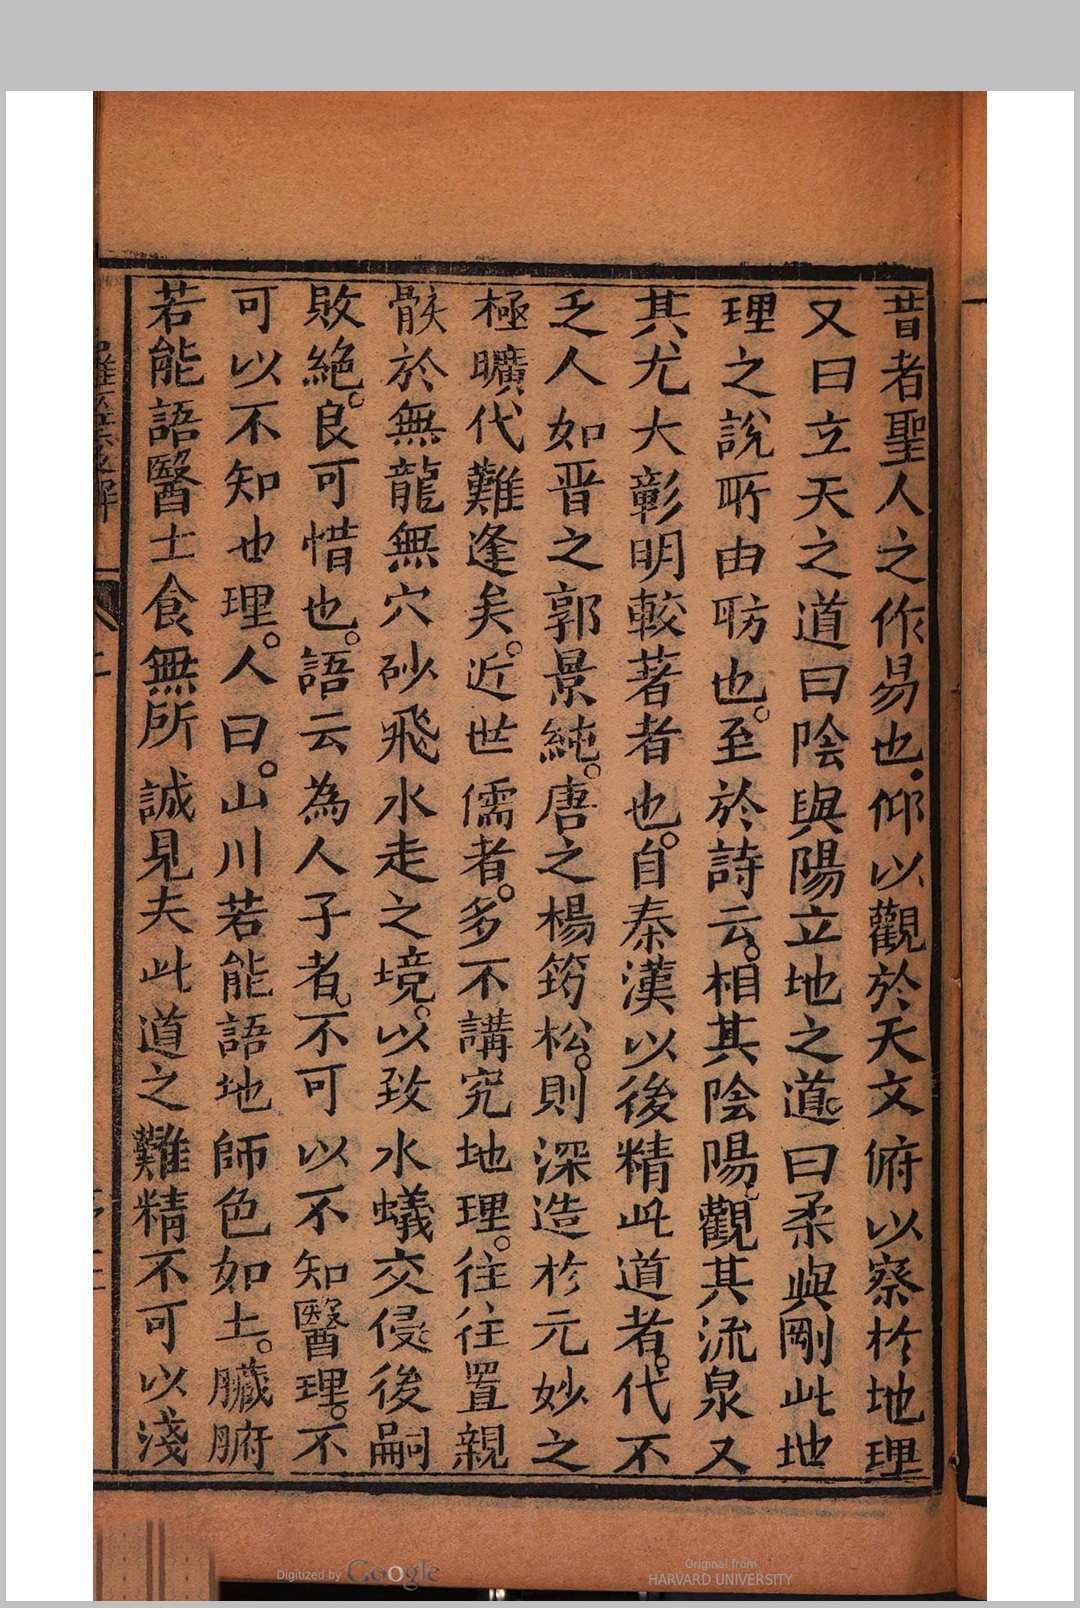 昔者聖人之作易也仰以觀於天文俯以察於地理
又曰立天之道曰陰與陽立地之道曰柔與剛此地
理之說所由昉也至於詩云相其陰陽觀其流泉又
其尤大彰明較著者也自秦漢以後精此道者代不
乏人如晋之郭景純唐之楊筠松則深造於元妙之
極曠代難逢矣近世儒者多不講究地理往往置親
骸於無龍無穴砂飛水走之境以致水蟻交侵後嗣
敗絶良可惜也語云為人子者不可以不知醫理不
可以不知也理人曰山川若能語地師色如土臟腑
若能語醫士食無所誠見夫此道之難精不可以淺
Digitized by Google
Original from
HARVARD UNIVERSITY